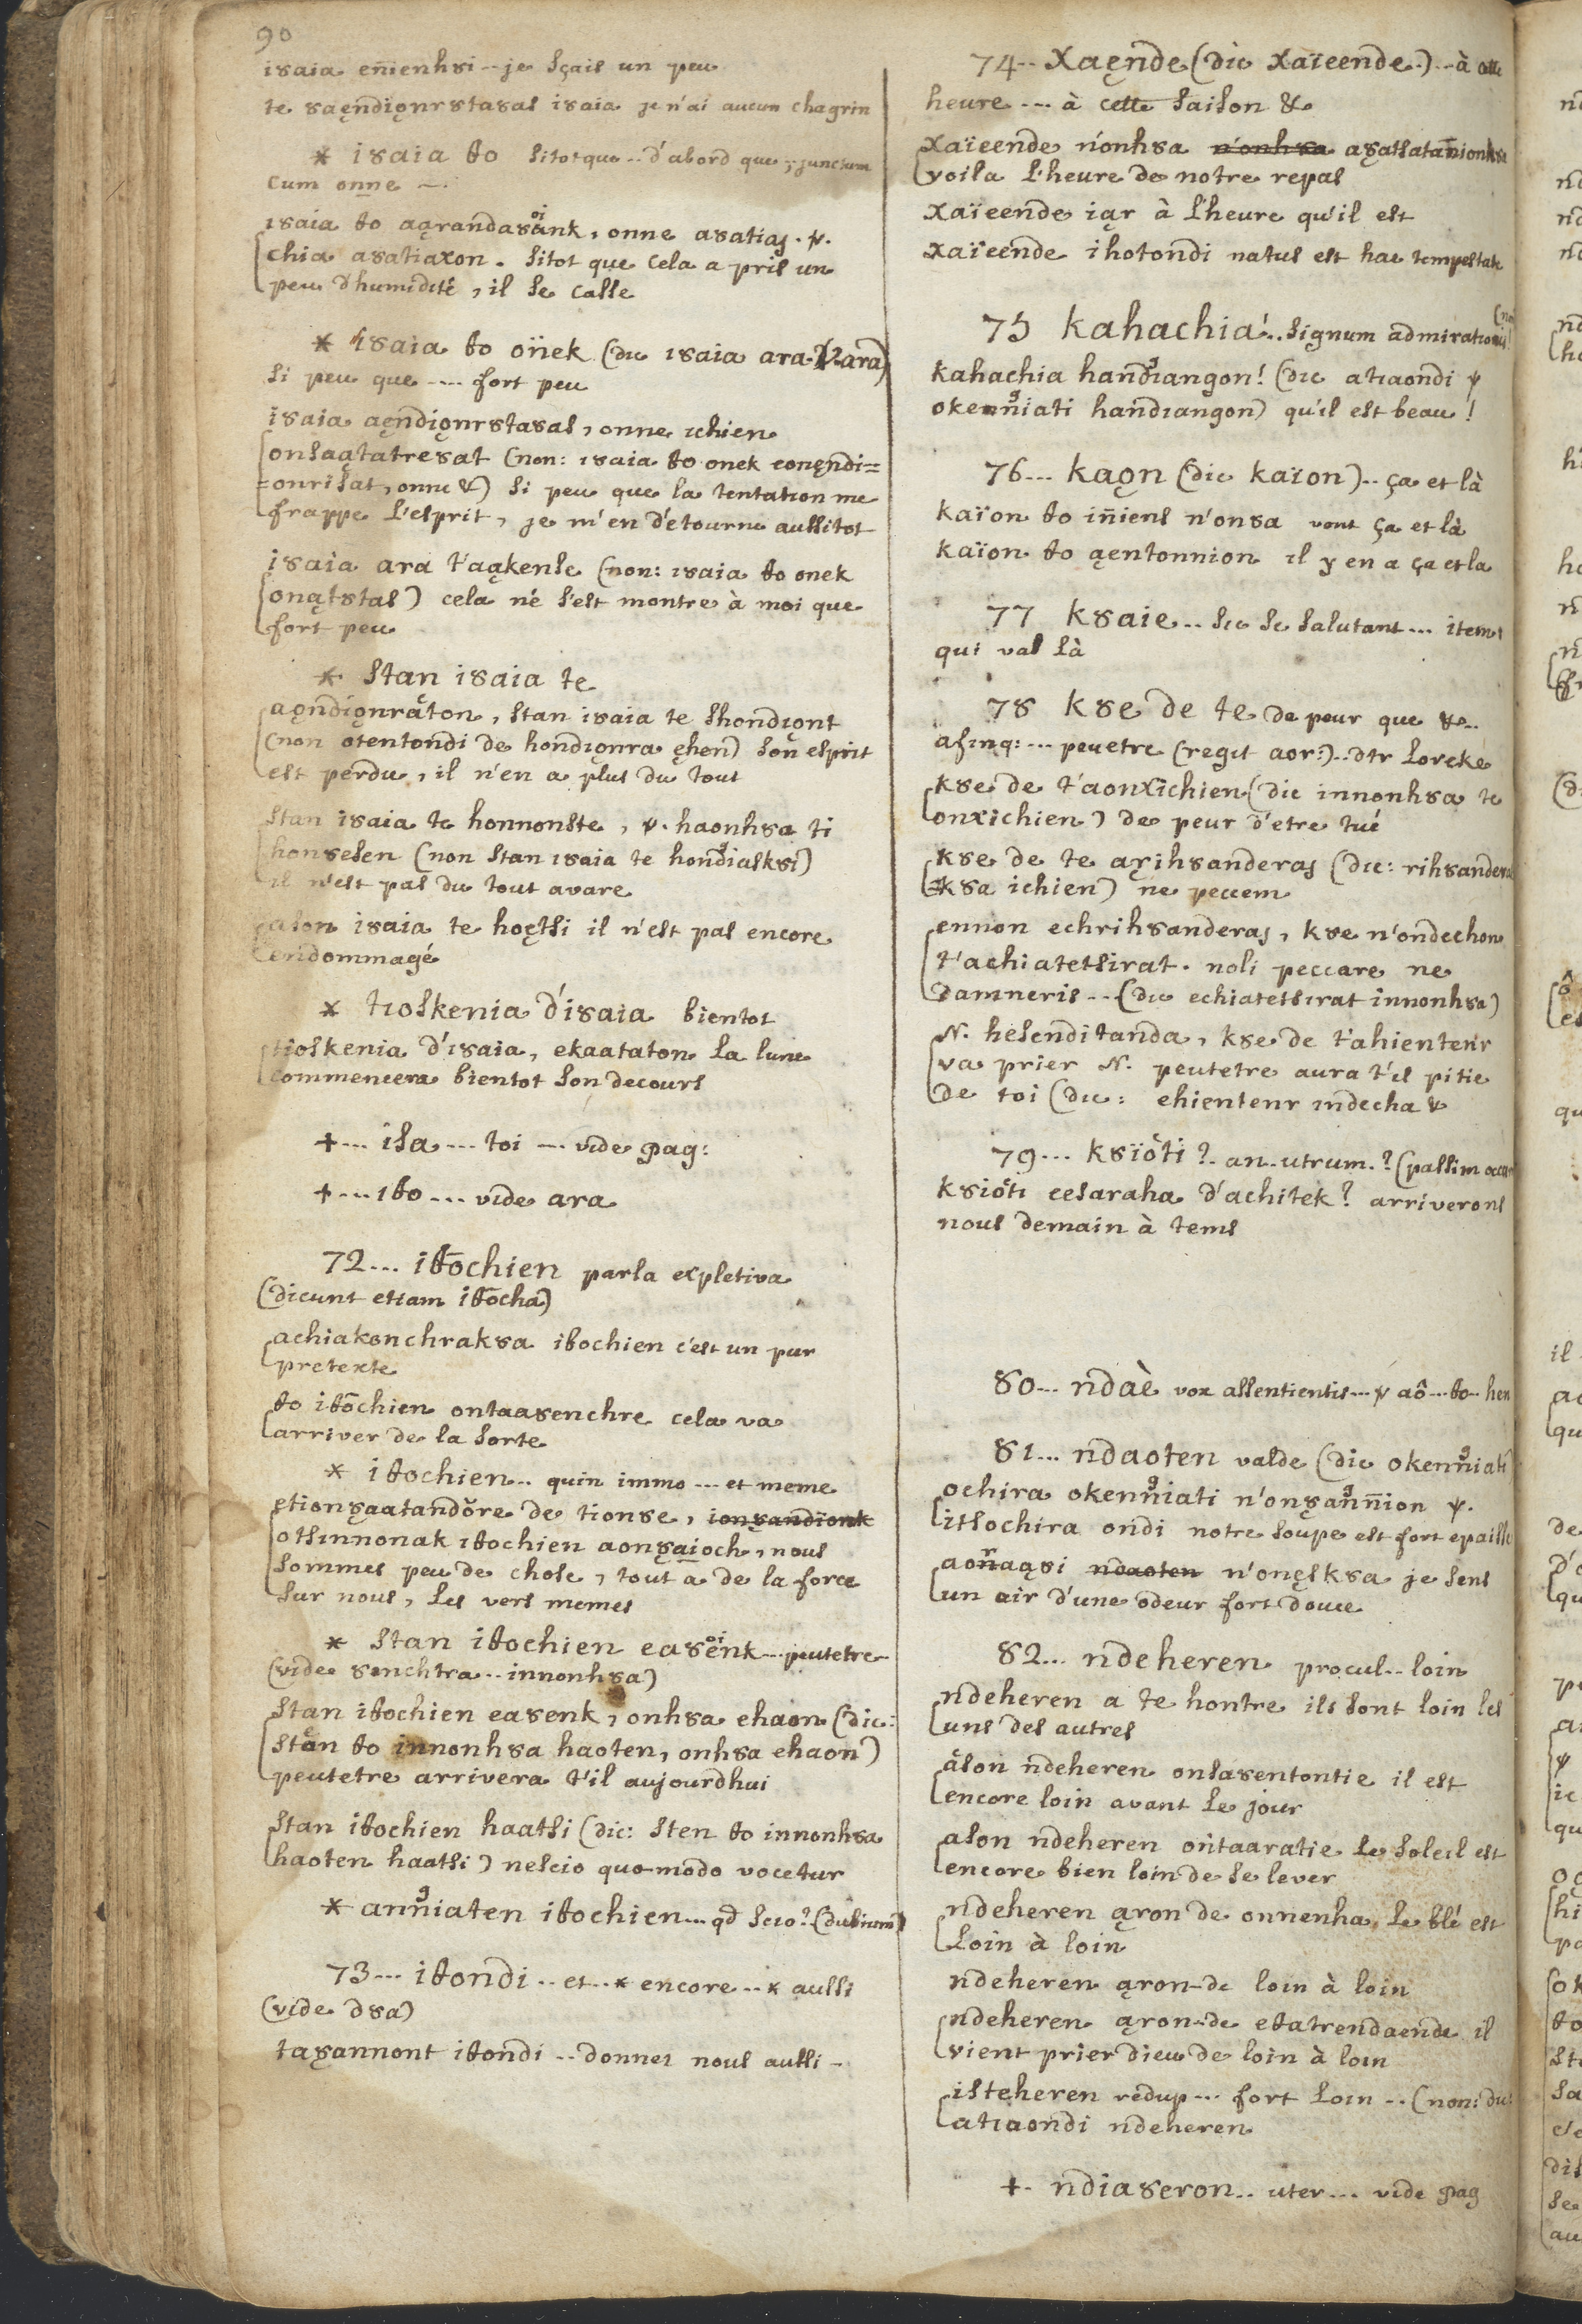 90
isaia en̄ienhsi -- je sçais un peu
te saęndiǫnrstasas isaia je n'ai aucun chagrin
* isaia ꝋo sitotque .. d'abord que ; junctum
cum onne —.
isaia ꝋo aąrandasänk, onne asatias . v.
chia asatiaxon . sitot que cela a pris un
peu d'humidité, il se casse
* isaia ꝋo onëk (dic isaia ara
si peu que ---- fort peu
isaia aęndiǫnrstasas, onne ichien
onsaątatresat (non: isaia ꝋo onek eonęndi=
=onrisat, onne &) si peu que la tentation me
frappe l'esprit, je m'en détourne aussitot
isaia ara t'aąkense (non: isaia ꝋo onek
onątstas) cela né s'est montre à moi que
fort peu
* stan isaia te
aǫndiǫnräton, stan isaia te shondiǫnt
(non otentondi de hondiǫnra ęhen) son esprit
est perdu, il n'en a plus du tout
stan isaia te honnonste, v. haonhsa ti
honsesen (non stan isaia te hondiasksi)
il n'est pas du tout avare
ason isaia te hoętsi il n'est pas encore
endommagé
* tioskenia d'isaia bientot
tioskenia d'isaia, ekaataton la lune
commencera bientot son decours
+ --- isa --- toi --- vide pag:
+ --- iꝋo --- vide ara
72 --- iꝋochien parla expletiva
(dicunt etiam iꝋocha)
achiakonchraksa iꝋochien c'est un pur
pretexte
ꝋo iꝋochien ontaasenchre cela va
arriver de la sorte
* iꝋochien .. quin immo --- et meme
etionsaatandŏre de tionse, ionsandionk
otsinnonak iꝋochien aonsaioch, nous
sommes peu de chose, tout a de la force
sur nous, les vers memes
* stan iꝋochien easenk --- peutetre
(vide senchtra .. innonhsa)
stan iꝋochien easenk, onhsa ehaon (dic:
stan ꝋo innonhsa haoten, onhsa ehaon)
peutetre arrivera t'il aujourdhui
stan iꝋochien haatsi (dic: sten ꝋo innonhsa
haoten haatsi) nescio quo modo vocetur
* anniaten iꝋochien --- qd scio? (dubium)
73 --- iꝋondi .. et .. * encore .. * aussi
(vide dsa)
tasannont iꝋondi .. donnez nous aussi -
74 -- xaęnde (dic xaïeende.) -- à cette
heure --- à cette saison &
xaïeende n'onhsa n'onhsa
voila l'heure de notre repas
xaïeende iąr à l'heure qu'il est
xaïeende ihotondi natus est hac tempestate
75 kahachia! .. signum admirationis
kahachia handiangon! (dic atiaondi v
okenniati handiangon) qu'il est beau !
76 --- kaǫn (dic kaïon) .. ça et là
kaïon ꝋo in̄iens n'onsa vont ça et là
kaïon ꝋo ąentonnion il y en a ça et la
77 ksaie .. sic se salutant --- item
qui vas là
78 kse de te de peur que &..
afinq: --- peuetre (regit aor:) .. dtr loreke
kse de t'aonxichien (dic innonhsa te
onxichien) de peur d'etre tué
kse de te aąrihsanderas (dic: rihsandera
ksa ichien) ne peccem
ennon echrihsanderas, kse n'ondechon
t'achiatetsirat . noli peccare ne
damneris -- (dic echiatetsirat innonhsa)
N. hesenditanda, kse de t'ahientenr
va prier N. peutetre aura t'il pitie
de toi (dic: ehientenr indecha &
79 --- ksïöti ? . an .. utrum . ? (passim
ksiöti eesaraha d'achitek? arriverons
nous demain à tems
80 --- ndaè vox assentientis --- v aô --- ꝋo hen
81 --- ndaoten valde (dic okenniati
ochira okenniati n'onsannion v.
itsochira ondi notre soupe est fort epaisse
aonaąsi ndaoten n'onęsksa je sens
un air d'une odeur fort douce
82 --- ndeheren procul .. loin
ndeheren a te hontre ils sont loin les
uns des autres
äson ndeheren onsasentontie il est
encore loin avant le jour
ason ndeheren ontaaratie le soleil est
encore bien loin de se lever
ndeheren ąron de onnenha, le blé est
loin à loin
ndeheren ąron-de loin à loin
ndeheren ąron-de eꝋatrendaende il
vient prier dieu de loin à loin
isteheren redup --- fort loin -- (non: du:
atiaondi ndeheren
+. ndiaseron .. uter --- vide pag